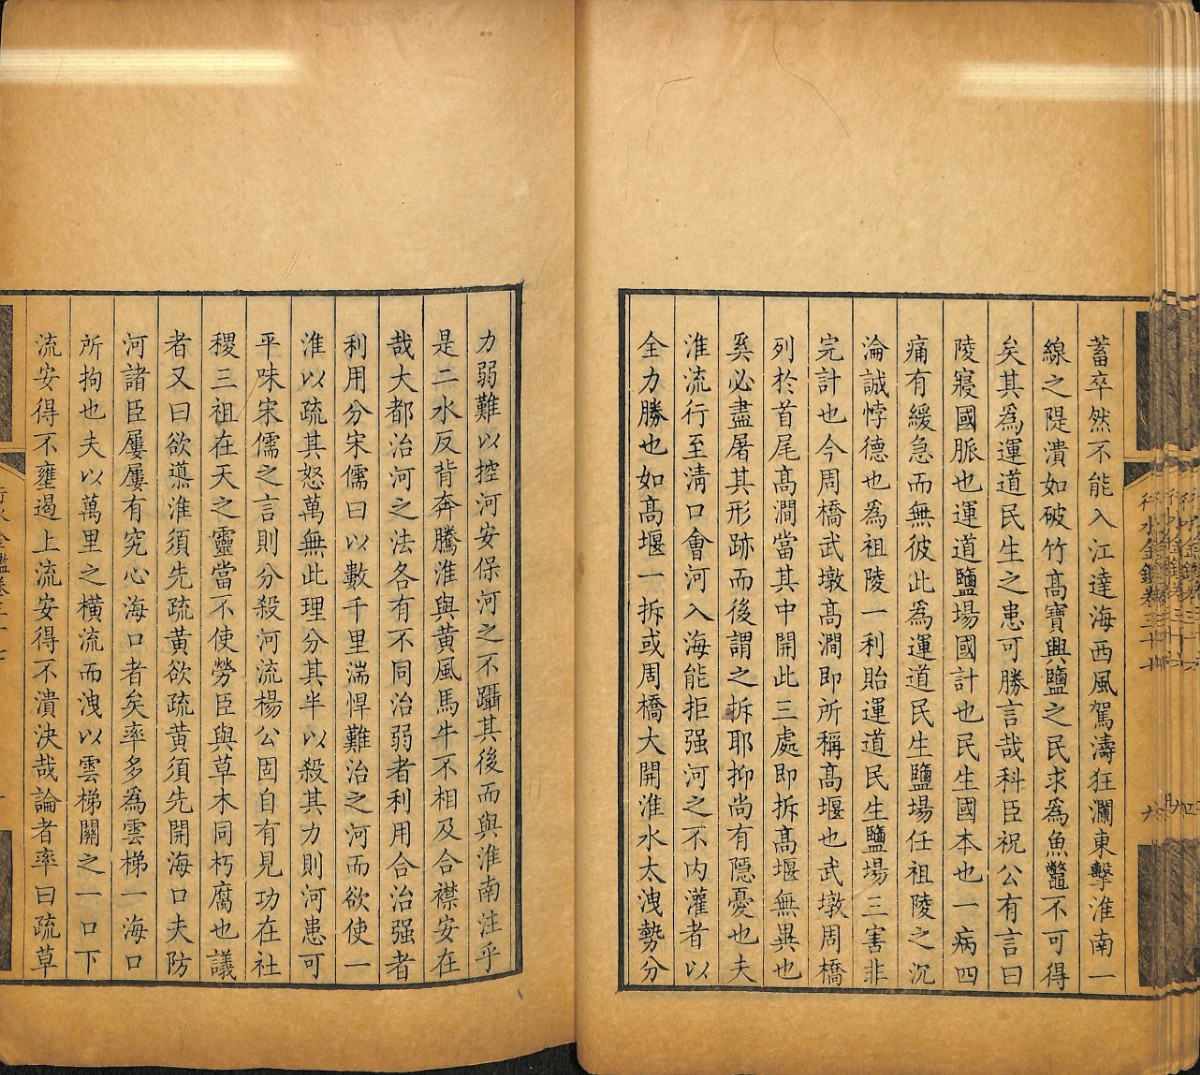 蓄卒然不能入江達海西風駕濤狂瀾東擊淮南一
線之隄潰如破竹髙寶興鹽之民求為魚鼈不可得
矣其為運道民生之患可勝言哉科臣祝公有言曰
陵寢國脈也運道鹽場國計也民生國本也一病四
痛有緩急而無彼此為運道民生鹽場任祖陵之沉
淪誠悖德也為祖陵一利貽運道民生鹽場三害非
完計也今周橋武墩髙澗即所稱髙堰也武墩周橋
列於首尾髙澗當其中開此三處即拆髙堰無異也
奚必盡屠其形跡而後謂之拆耶抑尚有隱憂也夫
淮流行至淸口會河入海能拒强河之不内灌者以
全力勝也如髙堰一拆或周橋大開淮水太洩勢分
力弱難以控河安保河之不躡其後而與淮南注乎
是二水反背奔騰淮與黃風馬牛不相及合襟安在
哉大都治河之法各有不同治弱者利用合治强者
利用分宋儒曰以數千里湍悍難治之河而欲使一
淮以疏其怒萬無此理分其半以殺其力則河患可
平味宋儒之言則分殺河流楊公固自有見功在社
稷三祖在天之靈當不使勞臣與草木同朽腐也議
者又曰欲導淮須先疏黃欲疏黃須先開海口夫防
河諸臣屢屢有究心海口者矣率多為雲梯一海口
所拘也夫以萬里之横流而洩以雲梯關之一口下
流安得不壅遏上流安得不潰決哉論者率曰疏草